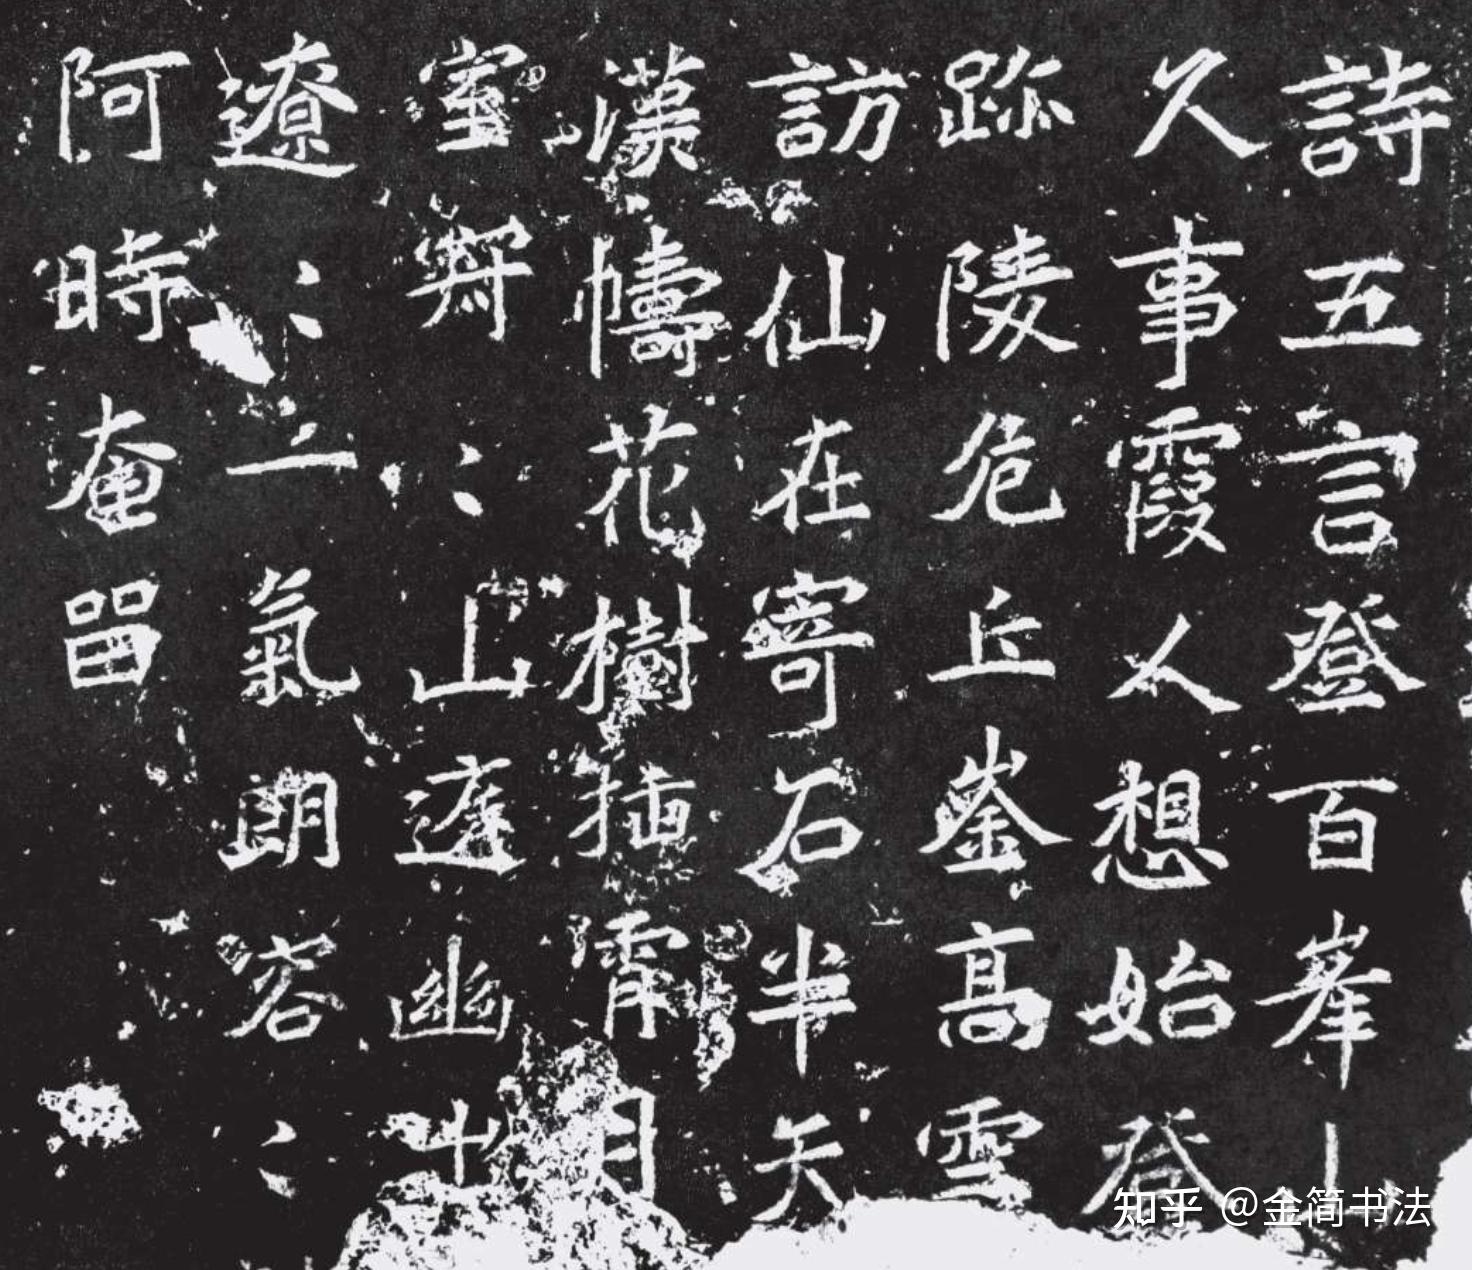 詩五言登百峯
久事霞人想始登
跡陵危丘崟高雪
訪仙在寄石半天
漢幬花樹插霄月
室〻山幽
遼〻上氣朗容〻
阿時奄畱
知乎 @金简书法